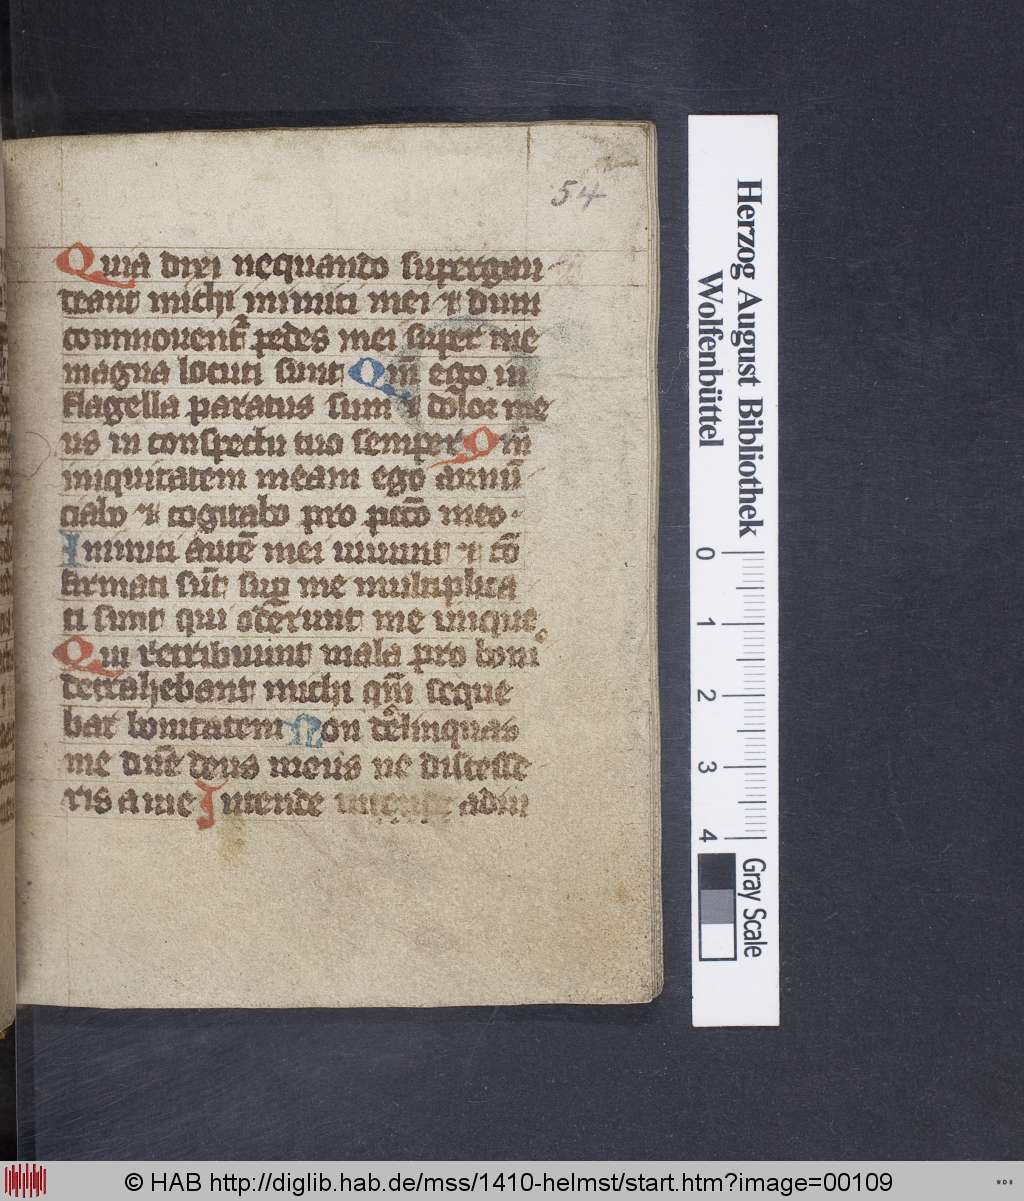 54
Quia dixi nequando supergau
deant michi inimici mei ⁊ dum
commouent᷑ pedes mei super me
magna locuti sunt Qm̄ ego in
flagella paratus sum ⁊ dolor me
us in conspectu tuo semper Qm̄
iniquitatem meam ego annū
ciabo ⁊ cogitabo pro pccō meo
Inimici autē mei uiuunt ⁊ cō
firmati sūt sup̄ me multiplica
ti sunt qui oderunt me inique
Qui retribuunt mala pro boni
detrahebant michi qm̄ seque
bar bonitatem Non derelinquas
me dn̄e deus meus ne discesse
ris a me Intende adiu
Herzog August Bibliothek
Wolfenbüttel
0 1 2 3 4
Gray Scale
© HAB http://diglib.hab.de/mss/1410-helmst/start.htm?image=00109